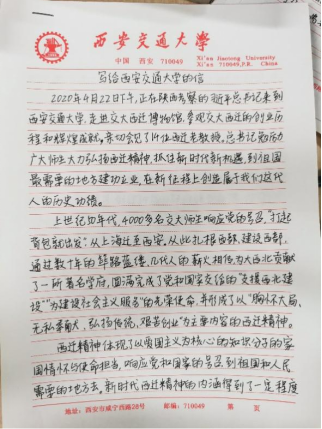 西安交通大学
中国 西安 710049
Xi'an Jiaotong University
Xi'an 710049, P.R. China
写给西安交通大学的信
2020年4月22日下午,正在陕西考察的习近平总书记来到
西安交通大学,走进交大西迁博物馆,参观交大西迁的创业历
程和辉煌成就,亲切会见了14位西迁老教授。总书记勉励
广大师生大力弘扬西迁精神,抓住新时代新机遇,到祖国
最需要的地方建功立业,在新征程上创造属于我们这代
人的历史功绩。
上世纪50年代,4000多名交大师生响应党的号召,"打起
背包就出发",从上海迁至西安,从此扎根西部,建设西部,
通过数十年的筚路蓝缕,几代人的薪火相传为大西北贡献
了一所著名学府,圆满完成了党和国家交给的"支援西北建
设""为建设社会主义服务"的光荣使命,并形成了以"胸怀大局、
无私奉献,弘扬传统,艰苦创业"为主要内容的西迁精神。
西迁精神体现了以爱国主义为核心的知识分子的家
国情怀与使命担当,响应党和国家的号召到祖国和人民
需要的地方去。新时代西迁精神的内涵得到了一定程度
地址:西安市咸宁西路28号 邮编:710049 第 页